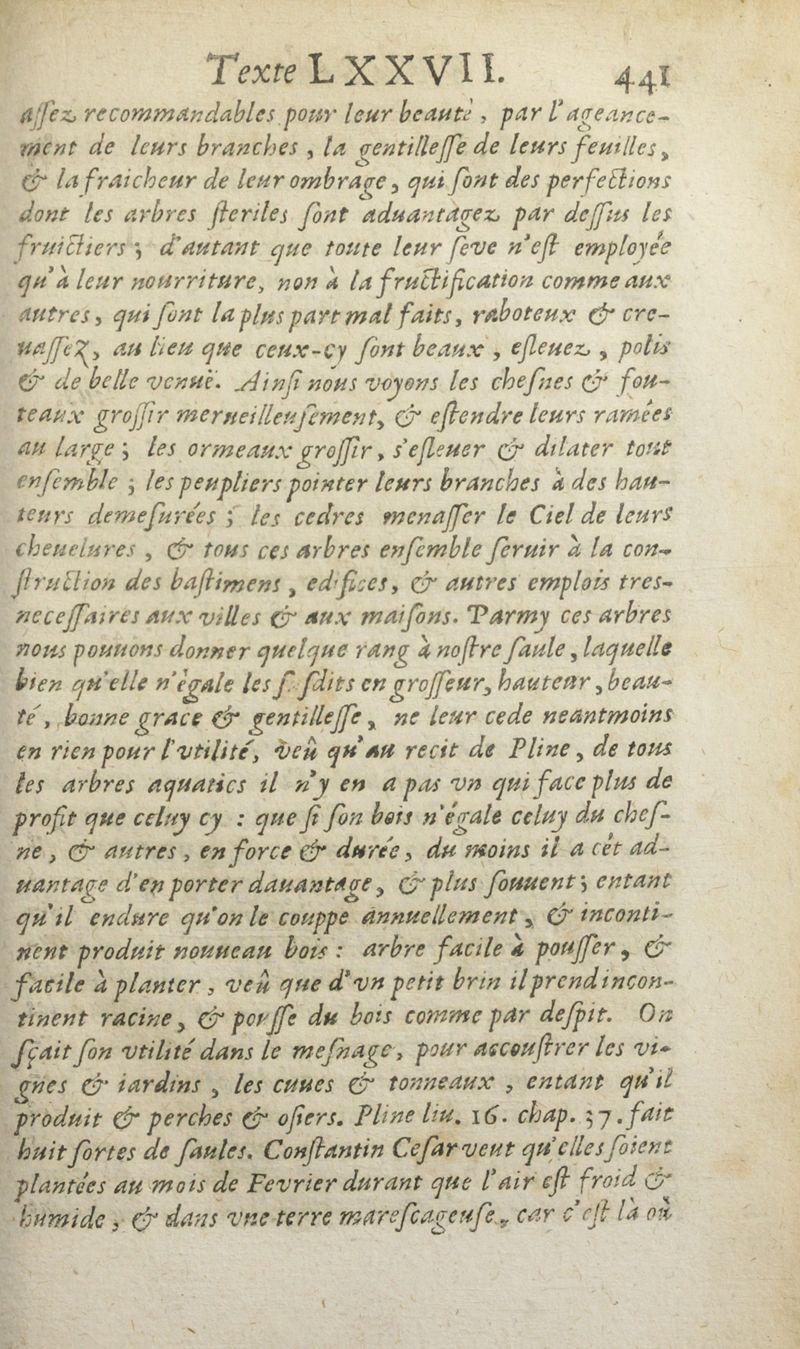 Texte LXXVII. 441
assez recommandables pour leur beauté, par l'ageance-
ment de leurs branches, la gentillesse de leurs feuilles,
& la fraicheur de leur ombrage, qui sont des perfections
dont les arbres steriles sont aduantagez par dessus les
fruictiers; d'autant que toute leur seve n'est employée
qu'à leur nourriture, non à la fructification comme aux
autres, qui sont la plus part mal faits, raboteux & cre-
uassez, au lieu que ceux-cy sont beaux, esleuez, polis
& de belle venuë. Ainsi nous voyons les chesnes & fou-
teaux grossir merueilleusement, & estendre leurs ramées
au large; les ormeaux grossir, s'esleuer & dilater tout
ensemble; les peupliers pointer leurs branches à des hau-
teurs demesurées; les cedres menasser le Ciel de leurs
cheuelures, & tous ces arbres ensemble seruir à la con-
struction des bastimens, edifices, & autres emplois tres-
necessaires aux villes & aux maisons. Parmy ces arbres
nous pouuons donner quelque rang à nostre saule, laquelle
bien qu'elle n'égale les s. sdits en grosseur, hauteur, beau-
té, bonne grace & gentillesse, ne leur cede neantmoins
en rien pour l'vtilité, veû qu'au recit de Pline, de tous
les arbres aquatics il n'y en a pas vn qui face plus de
profit que celuy cy : que si son bois n'égale celuy du ches-
ne, & autres, en force & durée, du moins il a cét ad-
uantage d'en porter dauantage, & plus souuent; entant
qu'il endure qu'on le couppe annuellement, & inconti-
nent produit nouueau bois : arbre facile à pousser, &
facile à planter, veû que d'vn petit brin il prend incon-
tinent racine, & pousse du bois comme par despit. On
sçait son vtilité dans le mesnage, pour accoustrer les vi-
gnes & iardins, les cuues & tonneaux, entant qu'il
produit & perches & osiers. Pline liu. 16. chap. 37. fait
huit sortes de saules. Constantin Cesar veut qu'elles soient
plantées au mois de Fevrier durant que l'air est froid &
humide, & dans vne terre marescageuse, car c'est là où